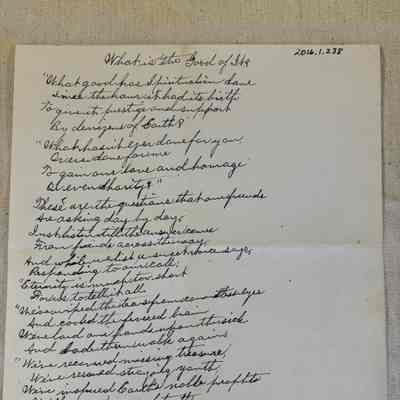 2016.1.238
What is the Good of It?
"What good has Spiritualism done
Since the hour it had its birth
To give it prestige and support
By denizens of Earth?
"What has it ever done for you,
Or ever done for me
To gain our love and homage
Or even charity?"
These are the questions that our friends
Are asking day by day,
Just listen till the answer come
From friends across the way,
And while we list a sweet voice says,
Responding to our call:
"Eternity is much too short
For us to tell it all
"We've wiped the tears from eyes
And cooled the fevered brow
We've laid our hands upon the sick
And bade them walk again,
"We've recovered missing treasure,
We've rescued straying youth,
We've inspired Earth's noble prophets